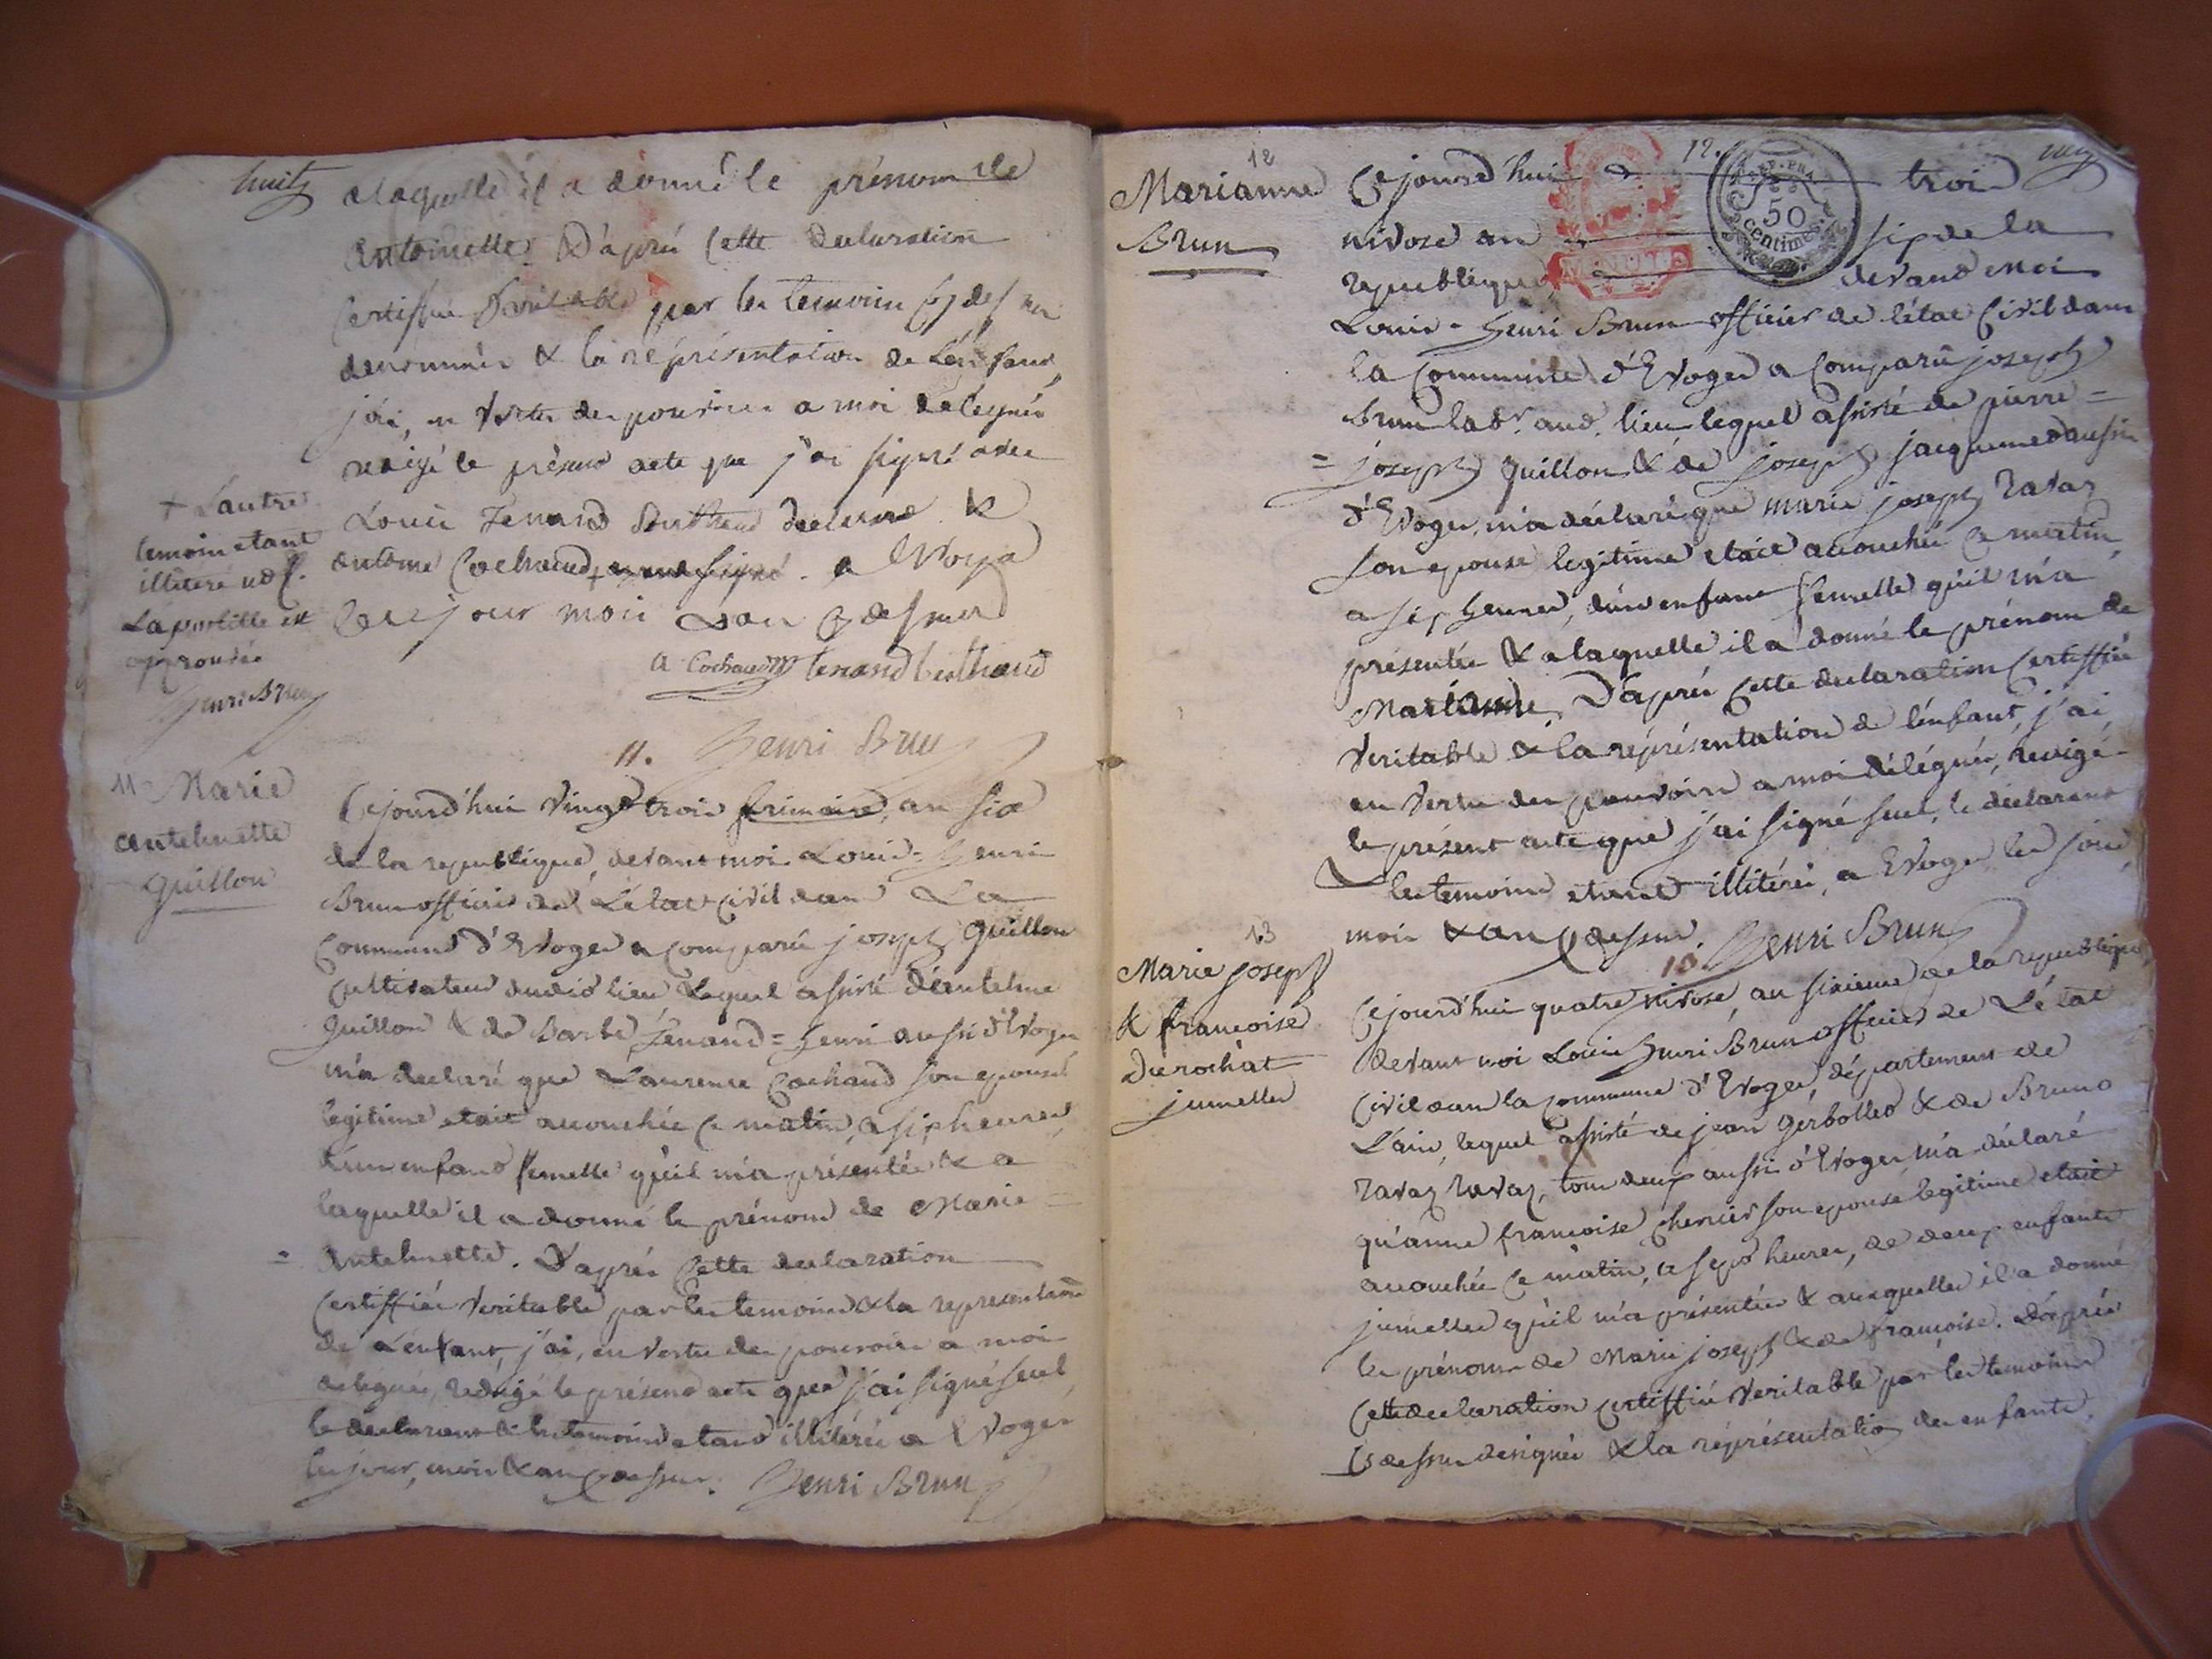 huit
alaquelle il a donné le prénom de
antoinette. D'après cette declaration
certiffiée veritable par les temoins cy dessus
denommés & la représentation de L'enfant,
j'ai, en vertu des pouvoirs a moi délégués
redigé le présent acte que j'ai signé avec
Louis Tenand Berthaud declarant &
antoine Cochaud + a Evoges
les jour mois & an cy dessus
+ L'autre
temoin etant
illiteré
Lapostille est
approuvée
Henri Brun
a Cochaud tenand berthaud
11. Henri Brun
11 Marie
antelmette
Guillon
Cejourd'hui vingt trois frimaire, an six
de la republique, devant moi Louis=Henri
Brun officier de L'état civil dans La
commune d'Evoges a comparû joseph Guillon
cultivateur dudit lieu Lequel assisté d'antelme
Guillon & de Barbe Tenand=Henri aussi d'Evoges
m'a declaré que Laurence Cochaud son epouse
legitime etait accouchée ce matin, a six heures,
d'un enfant femelle qu'il m'a présentée & a
laquelle il a donné le prénom de Marie=
=Antelmette. D'après cette declaration
certiffiée veritable par les temoins & la representaõn
de L'enfant, j'ai, en vertu des pouvoirs a moi
delegués, redigé le présent acte que j'ai signé seul
le declarant & les temoins etant illiterés a Evoges
les jour, mois & an cy dessus. Henri Brun
12
Marianne
Brun
12.
REP. FRA.
50
centimes
Cejourd'hui trois
nivose an six de la
republique devant moi
Louis=Henri Brun officier de l'état civil dans
la commune d'Evoges a comparû joseph
Brun labr. aud. lieu lequel assisté de pierre=
=joseph Guillon & de joseph jacquemet aussi
d'Evoges, m'a déclaré que marie joseph Ravaz
son epouse legitime etait accouchée ce matin
a six heures, d'un enfant femelle qu'il m'a
présentée & a laquelle il a donné le prénom de
Marianne. D'après cette declaration certiffiée
veritable & la représentation de l'enfant, j'ai,
en vertu des pouvoirs a moi délégués, redigé
le présent acte que j'ai signé seul, le déclarant
les temoins etant illitérés, a Evoges les jour,
mois & an cy dessus. Henri Brun
13
Marie joseph
& françoise
Durochat
jumelles
13.
Cejourd'hui quatre nivose, an sixieme de la republique
devant moi Louis Henri Brun officier de L'état
civil dans la commune d'Evoges, département de
L'ain, lequel assisté de jean Gerbollet & de Bruno
Ravaz Ravaz, tous deux aussi d'Evoges, m'a déclaré
qu'anne françoise son epouse legitime etait
accouchée ce matin, a sept heures, de deux enfants
jumelles qu'il m'a présentées & auxquelles il a donné
les prénoms de Marie joseph & de françoise. D'après
cette declaration certiffiée veritable par les temoins
cy dessus designés & la représentation des enfants,